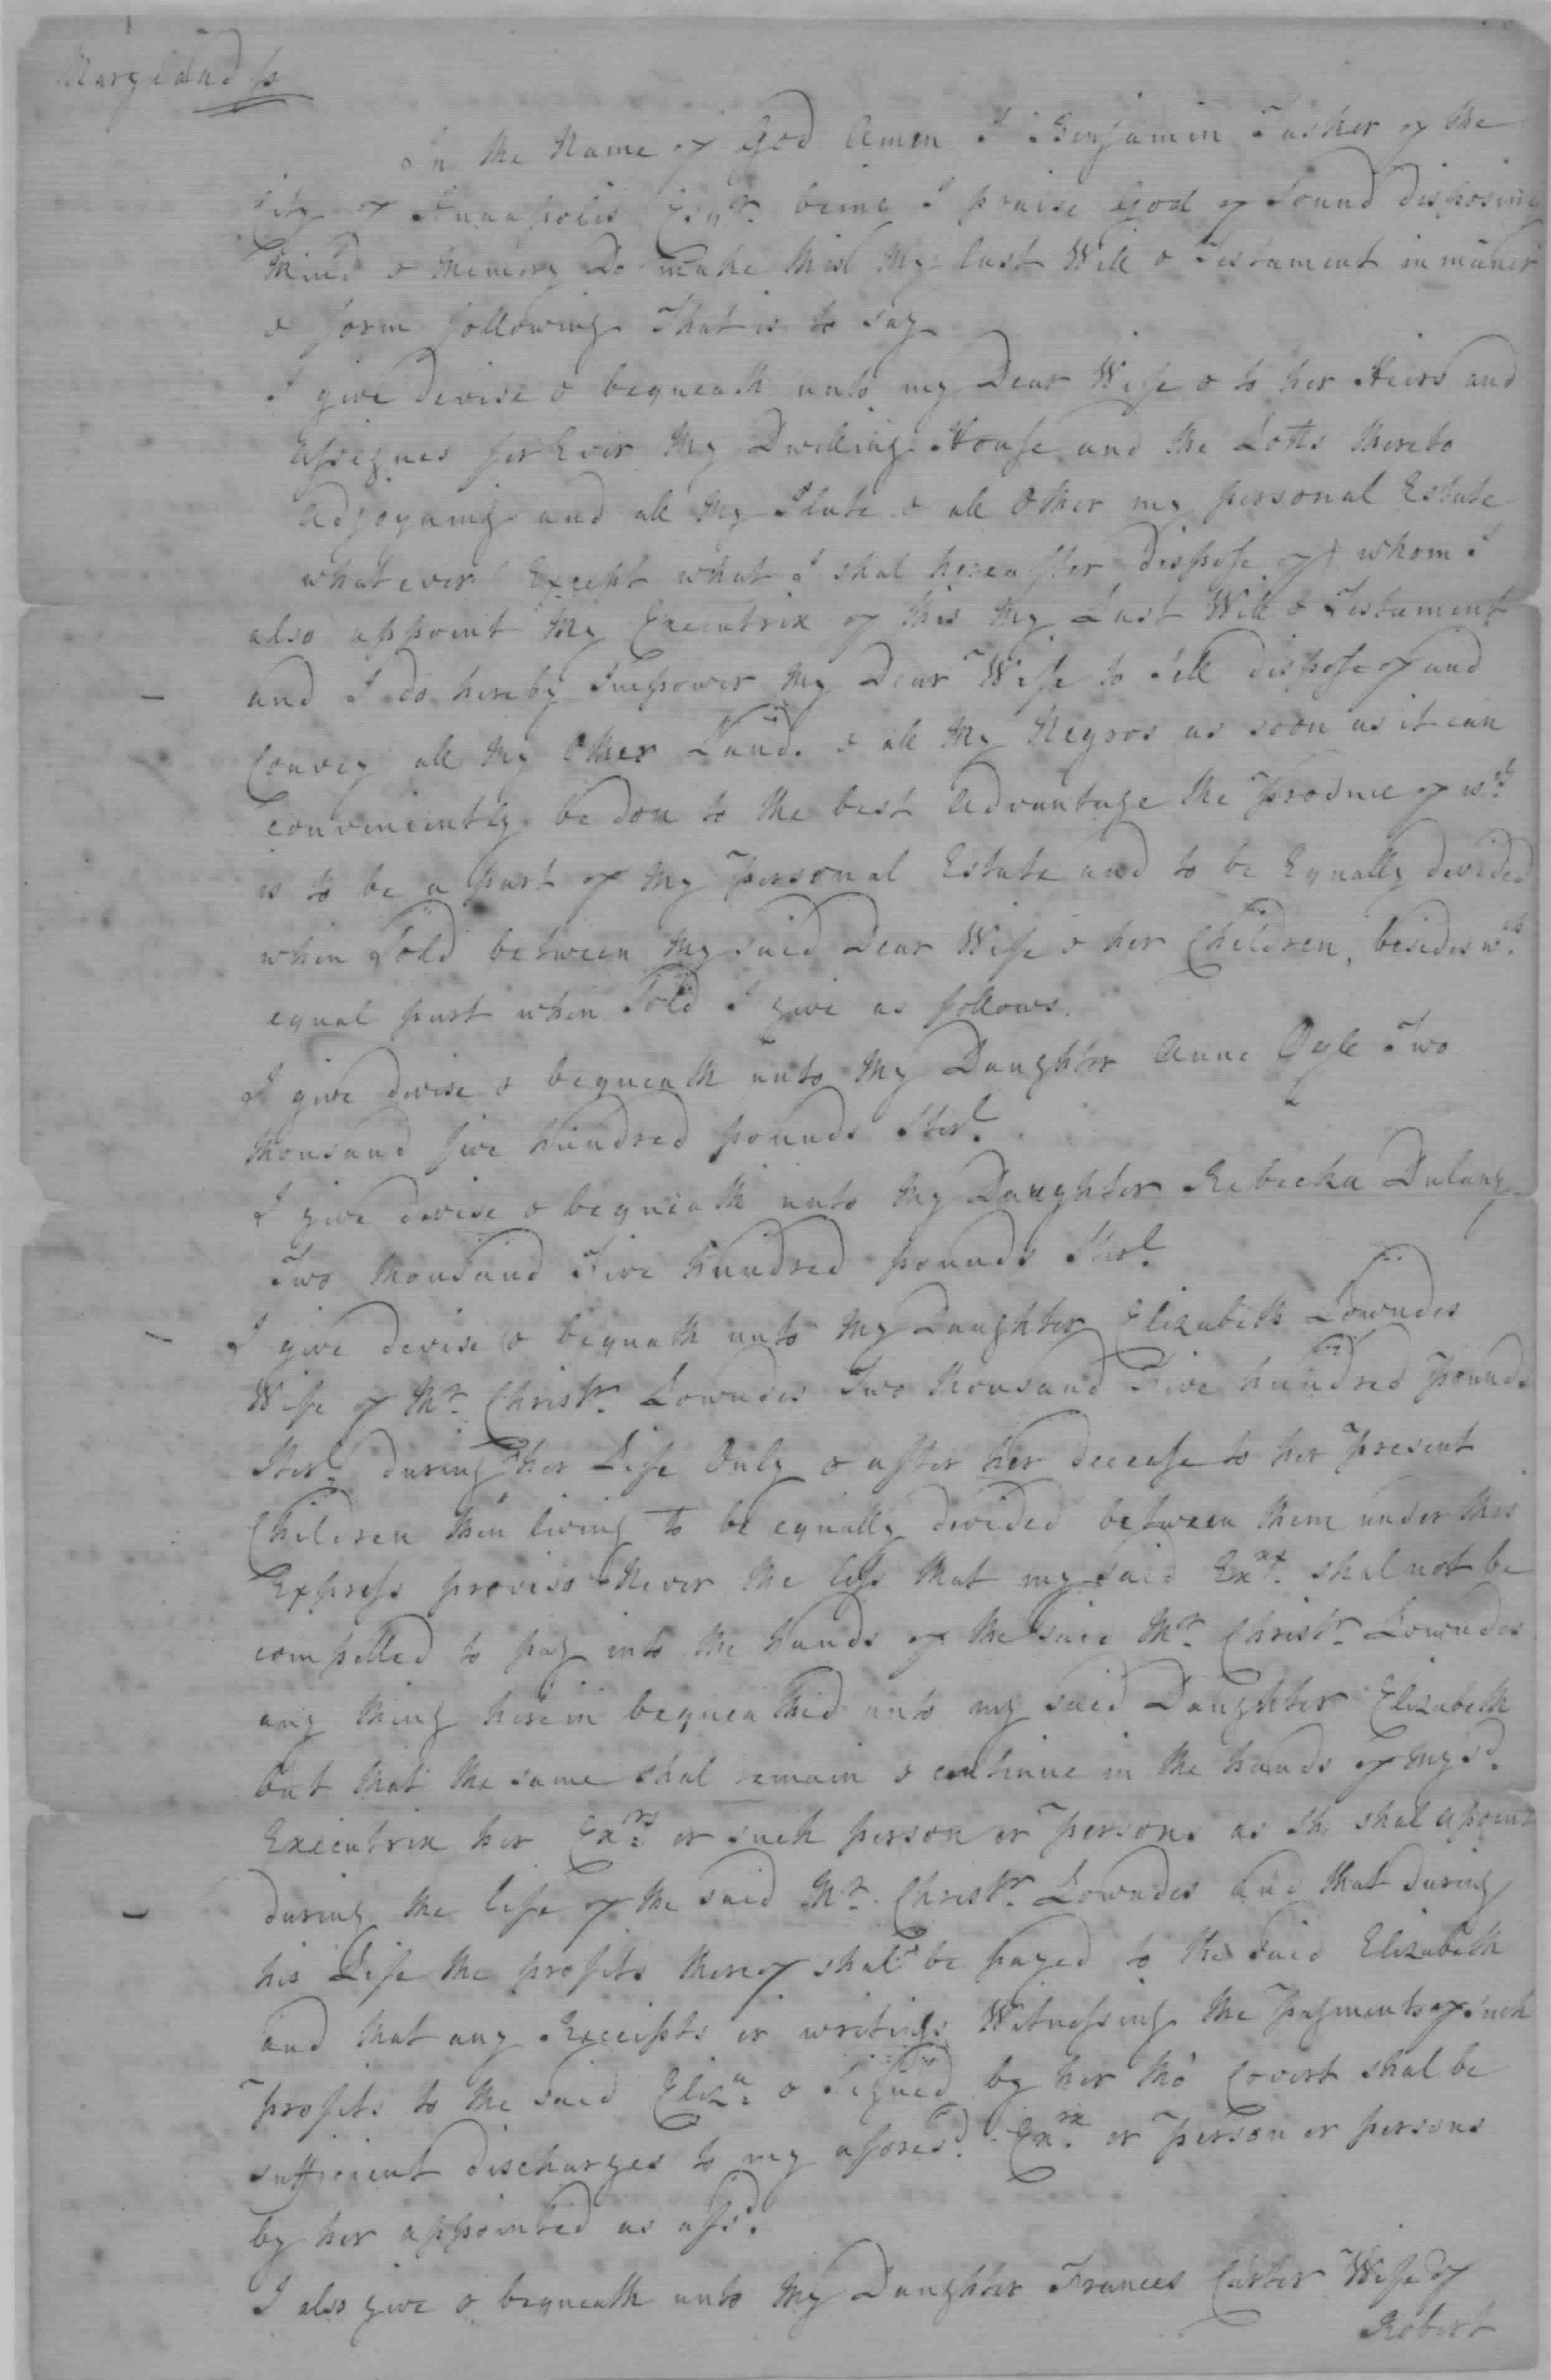 Maryland ss
In the Name of God Amen I Benjamin Tasker of the
City of Annapolis Esqr. being I praise God of Sound disposing
Mind & Memory Do make this My last Will & Testament in maner
& form following That is to say
I give devise & bequeath unto my Dear Wife & to her Heirs and
assignes for Ever My Dwelling House and the Lotts thereto
adjoyning and all My Plate & all Other my personal Estate
whatever (Except what I shal hereafter dispose of) whom I
also appoint My Executrix of this My Last Will & Testament
and I do hereby Impower My Dear Wife to Sell dispose of and
Convey all My Other Land. & all My Negros as soon as it can
conveniently be don to the best advantage the Produce of wch.
is to be a part of My Personal Estate and to be Equally devided
when Sold between My said Dear Wife & her Children, besides wch.
equal part when Sold I give as follows.
I give devise & bequeath unto My Daughter Anne Ogle Two
thousand five hundred pounds Sterl.
I give devise & bequeath unto My Daughter Rebecka Dulany
Two thousand Five hundred pounds Sterl.
I give devise & bequeath unto My Daughter Elizabeth Lowndes
Wife of Mr. Christr. Lowndes Two thousand Five hundred Pounds
Sterl. during her Life Only & after her decease to her Present
Children then living to be equally devided between them under this
Express proviso Never the less that my said Exrx. shal not be
compelled to pay into the hands of the said Mr. Christr. Lowndes
any thing herein bequeathed unto my said Daughter Elizabeth
but that the same shal remain & continue in the hands of my sd.
Executrix her Exrs. or such person or Persons as she shal apoint
during the life of the said Mr. Christr. Lowndes and that during
his Life the profits thereof shal be payed to the said Elizabeth
and that any Receipts or writings Witnessing the Payments of such
Profits to the said Eliza. & Signed by her tho' Covert shal be
sufficient discharges to my aforesd. Exrx. or Person or persons
by her appointed as afsd.
I also give & bequeath unto My Daughter Frances Carter Wife of
Robert